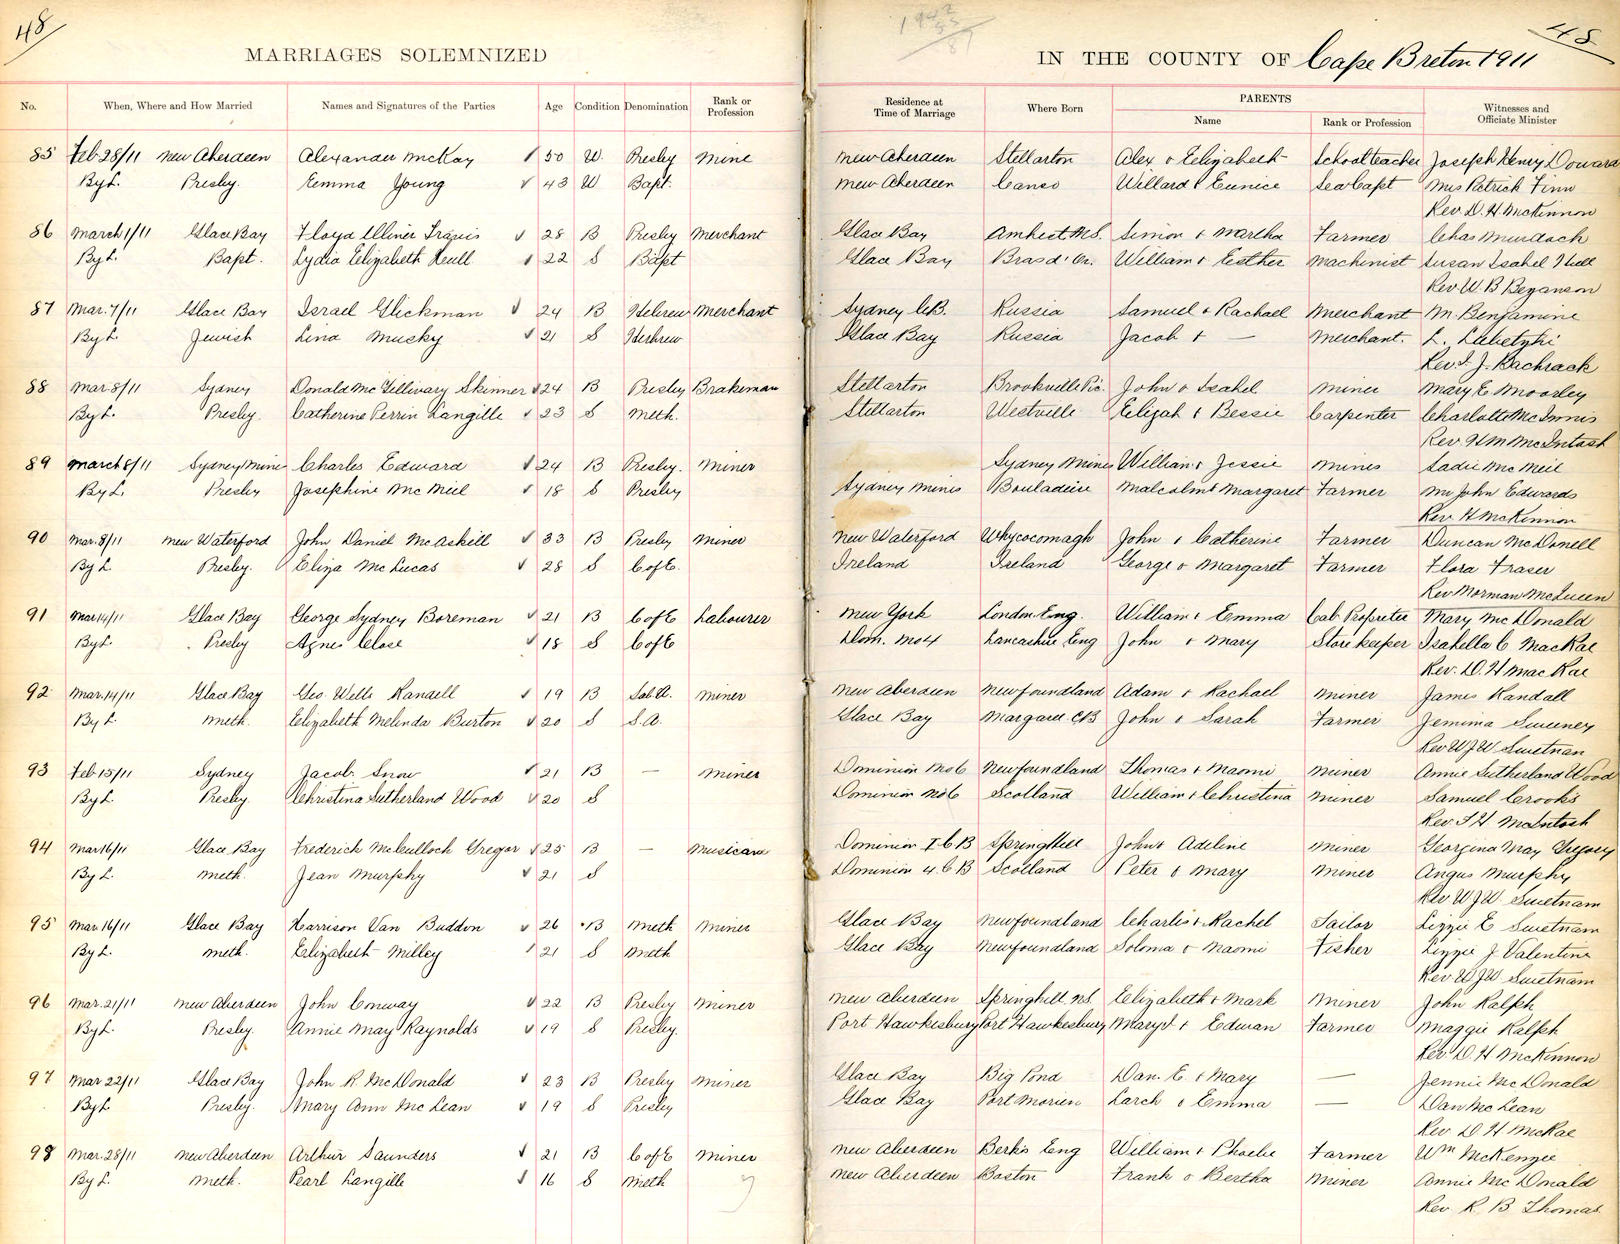 48
MARRIAGES SOLEMNIZED
No. When, Where and How Married Names and Signatures of the Parties Age Condition Denomination Rank or Profession
85 Feb 28/11 New Aberdeen Alexander McKay 50 W. Presby Mine
By L. Presby. Emma Young 43 W Bapt.
86 March 1/11 Glace Bay Floyd 28 B Presby Merchant
By L. Bapt. Lydia Elizabeth Hull 22 S Bapt
87 Mar. 7/11 Glace Bay Israel Glickman 24 B Hebrew Merchant
By L. Jewish Lina Musky 21 S Herbrew
88 Mar. 8/11 Sydney Donald McGillivary Skinner 24 B Presby Brakeman
By L. Presby. Catherine Perrin Langille 23 S Meth.
89 March 8/11 Sydney Mines Charles Edward 24 B Presby. Miner
By L. Presby Josephine McNeil 18 S Presby
90 Mar. 8/11 New Waterford John Daniel McAskill 33 B Presby Miner
By L. Presby. Eliza McLucas 28 S C of E.
91 Mar 14/11 Glace Bay George Sydney Boreman 21 B C of E Labourer
By L. Presby Agnes Close 18 S C of E
92 Mar. 14/11 Glace Bay Geo. Wells Randell 19 B Sal. A. Miner
By L. Meth. Elizabeth Melinda Burton 20 S S.A.
93 Feb 15/11 Sydney Jacob Snow 21 B — Miner
By L. Presby. Christina Sutherland Wood 20 S
94 Mar 16/11 Glace Bay Frederick McCulloch Gregor 25 B — Musician
By L. Meth. Jean Murphy 21 S
95 Mar. 16/11 Glace Bay Harrison Van Buddon 26 B Meth Miner
By L. Meth. Elizabeth Milley 21 S Meth
96 Mar. 21/11 New Aberdeen John Conway 22 B Presby Miner
By L. Presby. Annie May Raynolds 19 S Presby.
97 Mar 22/11 Glace Bay John R. McDonald 23 B Presby Miner
By L Presby. Mary Ann McLean 19 S Presby
98 Mar. 28/11 New Aberdeen Arthur Saunders 21 B C of E Miner
By L. Meth. Pearl Langille 16 S Meth
48
IN THE COUNTY OF Cape Breton 1911
Residence at Time of Marriage Where Born PARENTS Name Rank or Profession Witnesses and Officiate Minister
New Aberdeen Stellarton Alex & Elizabeth Schoolteacher Joseph Henry Doward
New Aberdeen Canso Willard & Eunice Sea Capt Mrs Patrick Finn
Rev. D. H. McKinnon
Glace Bay Amherst N.S. Simon & Martha Farmer Chas Murdoch
Glace Bay Bras d'Or. William & Esther Machinist Susan Isabel Hull
Rev. W. B. Bezanson
Sydney C.B. Russia Samuel & Rachael Merchant M. Benjamine
Glace Bay Russia Jacob & — Merchant. L.
Rev. J. Bachrack
Stellarton Brookville Pic. John & Isabel Miner Mary E Moorley
Stellarton Westville Elijah & Bessie Carpenter Charlotte McInnis
Rev. H M McIntosh
Sydney Mines William & Jessie Mines Sadie McNeil
Sydney Mines Bouladrie Malcolm & Margaret Farmer Mr John Edwards
Rev. H McKinnon
New Waterford Whycocomagh John & Catherine Farmer Duncan McDonell
Ireland Ireland George & Margaret Farmer Flora Fraser
Rev Norman McQueen
New York London Eng. William & Emma Cab Propreter Mary McDonald
Dom. No 4 Lancashire Eng John & Mary Storekeeper Isabella C MacRae
Rev. D. H MacRae
New Aberdeen Newfoundland Adam & Rachael Miner James Randall
Glace Bay Margaree CB John & Sarah Farmer Jemima Sweeney
Rev W J W Swetnan
Dominion No 6 Newfoundland Thomas & Naomi Miner Annie Sutherland Wood
Dominion No 6 Scotland William & Christina Miner Samuel Crooks
Rev. F H McIntosh
Dominion I C B Springhill John & Adeline Miner Georgina May Gregory
Dominion 4. C B Scotland Peter & Mary Miner Angus Murphy
Rev W J W. Swetnam
Glace Bay Newfoundland Charles & Rachel Tailor Lizzie E Swetnam
Glace Bay Newfoundland Soloma & Naomi Fisher Lizzie J. Valentine
Rev. W J W Swetnam
New Aberdeen Springhill N.S. Elizabeth & Mark Miner John Ralph
Port Hawkesbury Port Hawkesbury Mary J. & Edwan Farmer Maggie Ralph
Rev. D. H McKinnon
Glace Bay Big Pond Dan. E. & Mary — Jennie McDonald
Glace Bay Port Morien Larch & Emma — Dan McLean
Rev. D H McRae
New Aberdeen Berks Eng William & Phoebe Farmer Wm McKenzie
New Aberdeen Boston Frank & Bertha Miner Annie McDonald
Rev R. B. Thomas